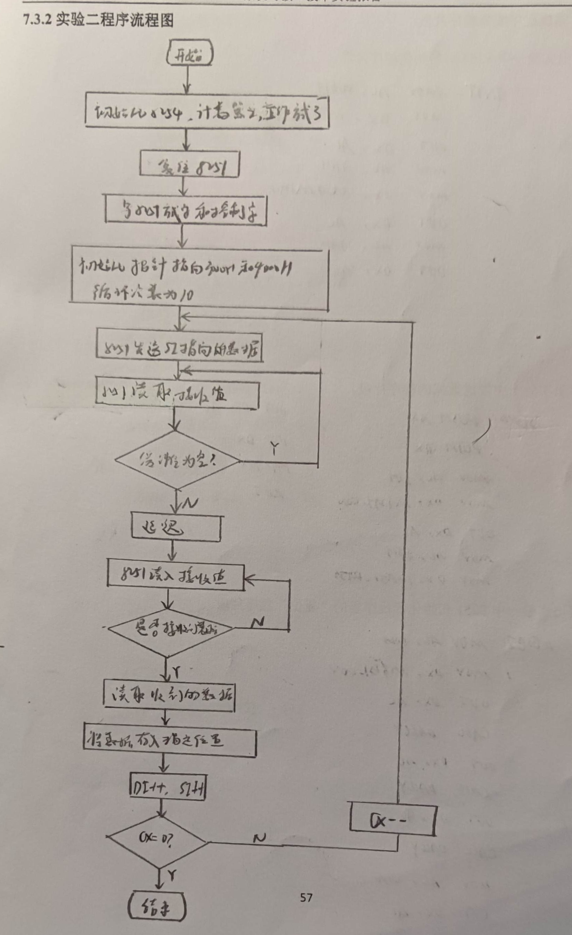 7.3.2 实验二程序流程图
开始
初始化8254,计数器2,工作方式3
复位8251
写8251方式字和控制字
初始化指针指向3000H和4000H
循环次数为10
8251发送SI指向的数据
8251读取接收值
Y
N
延迟
8251读入接收值
是否接收
N
Y
读取收到的数据
将数据存入指定位置
DI++, SI++
CX--
CX=0?
N
Y
57
结束